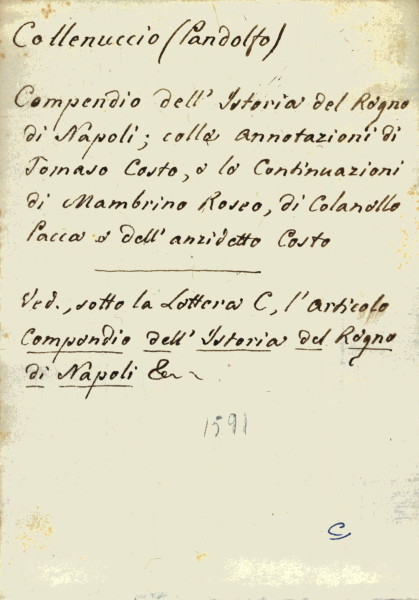 Collenuccio (Pandolfo)
Compendio dell' Istoria del Regno
di Napoli; colle Annotazioni di
Tomaso Costo, e le Continuazioni
di Mambrino Roseo, di Colanello
Pacca e dell' anzidetto Costo
Ved., sotto la Lettera C, l' Articolo
Compendio dell' Istoria del Regno
di Napoli &c
1591
C